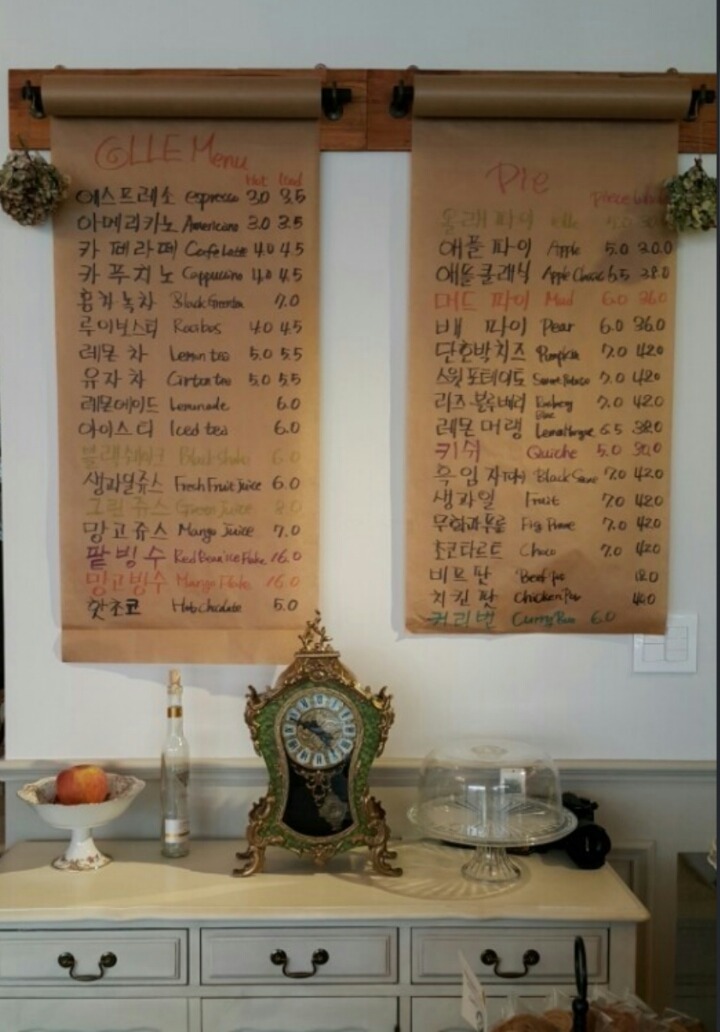 OLLE Menu
Hot Iced
에스프레소 espresso 3.0 3.5
아메리카노 Americano 3.0 3.5
카페라떼 Cafe Latte 4.0 4.5
카푸치노 Cappuccino 4.0 4.5
홍차녹차 Black 7.0
루이보스티 Rooibos 4.0 4.5
레몬차 Lemon tea 5.0 5.5
유자차 tea 5.0 5.5
레몬에이드 Lemonade 6.0
아이스티 Iced tea 6.0
블랙쉐이크 Black shake 6.0
생과일쥬스 Fresh Fruit Juice 6.0
그린쥬스 Green Juice 8.0
망고쥬스 Mango Juice 7.0
팥빙수 Red Bean Ice Flake 16.0
망고빙수 Mango Flake 16.0
핫초코 5.0
Pie
Piece
올래파이 5.0
애플파이 Apple 5.0 30.0
애플클래식 Apple Classic 6.5 38.0
머드파이 Mud 6.0 36.0
배파이 Pear 6.0 36.0
단호박치즈 Pumpkin 7.0 42.0
스윗포테이토 Sweet Potato 7.0 42.0
라즈블루베리 7.0 42.0
레몬머랭 6.5 38.0
키쉬 Quiche 5.0 30.0
흑임자 Black 7.0 42.0
생과일 Fruit 7.0 42.0
무화과푸룬 Fig Prune 7.0 42.0
초코타르트 Choco 7.0 42.0
비프팟 Beef Pot
치킨팟 Chicken Pot
커리번 Curry Bun 6.0